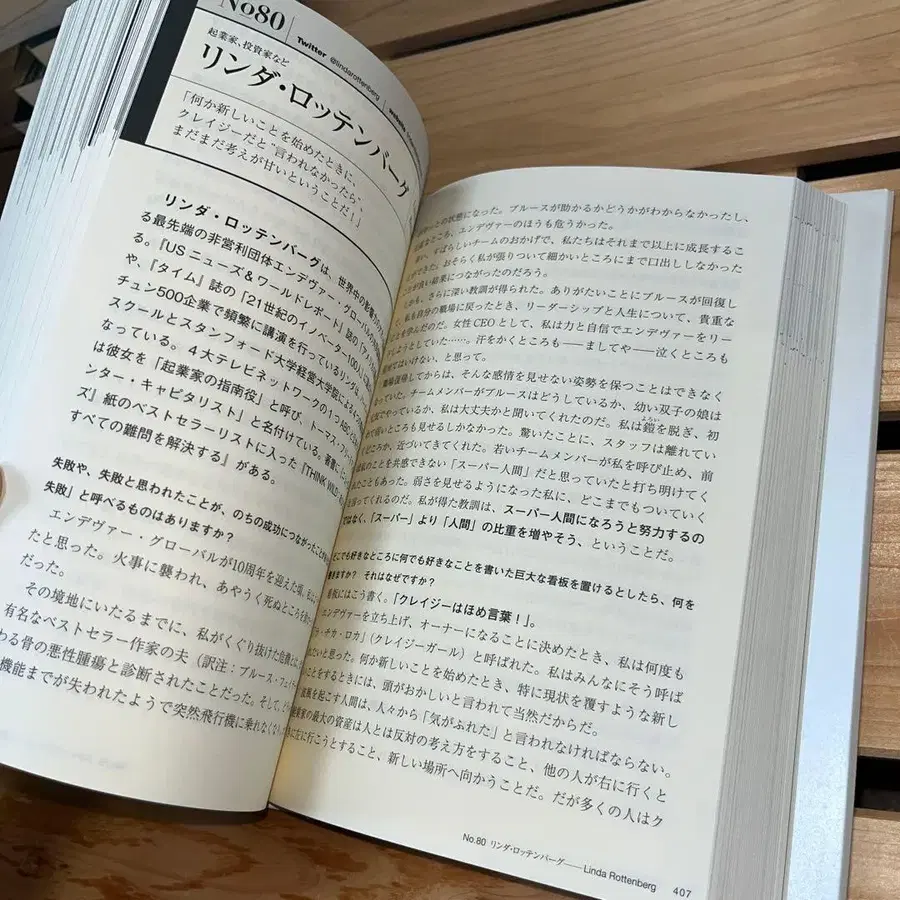 No80
Twitter @lindarottenberg
website
起業家、投資家など
リンダ・ロッテンバーグ
「何か新しいことを始めたときに、
クレイジーだと"言われなかったら、
まだまだ考えが甘いということだ！」
リンダ・ロッテンバーグは、世界中の影響力の
る最先端の非営利団体エンデヴァー・グローバルの
る。『USニューズ＆ワールドレポート』誌の「
や、『タイム』誌の「21世紀のイノベーター100人」
チュン500企業で頻繁に講演を行っているリンダは、
スクールとスタンフォード大学経営大学院による
なっている。4大テレビネットワークの1つABCと
は彼女を「起業家の指南役」と呼び、トーマス・フリー
ンター・キャピタリスト」と名付けている。著書に
ズ』紙のベストセラーリストに入った『THINK WILD
すべての難問を解決する』がある。
失敗や、失敗と思われたことが、のちの成功につながったことが
失敗」と呼べるものはありますか？
エンデヴァー・グローバルが10周年を迎えた頃、私は
たと思った。火事に襲われ、あやうく死ぬところを
だった。
その境地にいたるまでに、私がくぐり抜けた危機は
有名なベストセラー作家の夫（訳注：ブルース・ファイ
わる骨の悪性腫瘍と診断されたことだった。そして、
機能までが失われたようで突然飛行機に乗れなくな
の状態になった。ブルースが助かるかどうかがわからなかったし、
ところ、エンデヴァーのほうも危うかった。
すばらしいチームのおかげで、私たちはそれまで以上に成長するこ
できた。おそらく私が張りついて細かいところにまで口出ししなかった
が良い結果につながったのだろう。
も、さらに深い教訓が得られた。ありがたいことにブルースが回復し
私も自分の職場に戻ったとき、リーダーシップと人生について、貴重な
を学んだのだ。女性CEOとして、私は力と自信でエンデヴァーをリー
しようとしていた……。汗をかくところも——ましてや——泣くところも
せてはいけない、と思って。
職場復帰してからは、そんな感情を見せない姿勢を保つことはできなく
っていた。チームメンバーがブルースはどうしているか、幼い双子の娘は
でやっているか、私は大丈夫かと聞いてくれたのだ。私は鎧を脱ぎ、初
よろい
て弱いところも見せるしかなかった。驚いたことに、スタッフは離れてい
どころか、近づいてきてくれた。若いチームメンバーが私を呼び止め、前
私のことを共感できない「スーパー人間」だと思っていたと打ち明けてく
たこともあった。弱さを見せるようになった私に、どこまでもついていく
言ってくれるのだ。私が得た教訓は、スーパー人間になろうと努力するの
ではなく、「スーパー」より「人間」の比重を増やそう、ということだ。
どこでも好きなところに何でも好きなことを書いた巨大な看板を置けるとしたら、何を
書きますか？ それはなぜですか？
看板にはこう書く。「クレイジーはほめ言葉！」。
エンデヴァーを立ち上げ、オーナーになることに決めたとき、私は何度も
・チカ・ロカ」（クレイジーガール）と呼ばれた。私はみんなにそう呼ば
れたいと思った。何か新しいことを始めたとき、特に現状を覆すような新し
ことをするときには、頭がおかしいと言われて当然だからだ。
波風を起こす人間は、人々から「気がふれた」と言われなければならない。
起業家の最大の資産は人とは反対の考え方をすること、他の人が右に行くと
きに左に行こうとすること、新しい場所へ向かうことだ。だが多くの人はク
No.80 リンダ・ロッテンバーグ——Linda Rottenberg 407